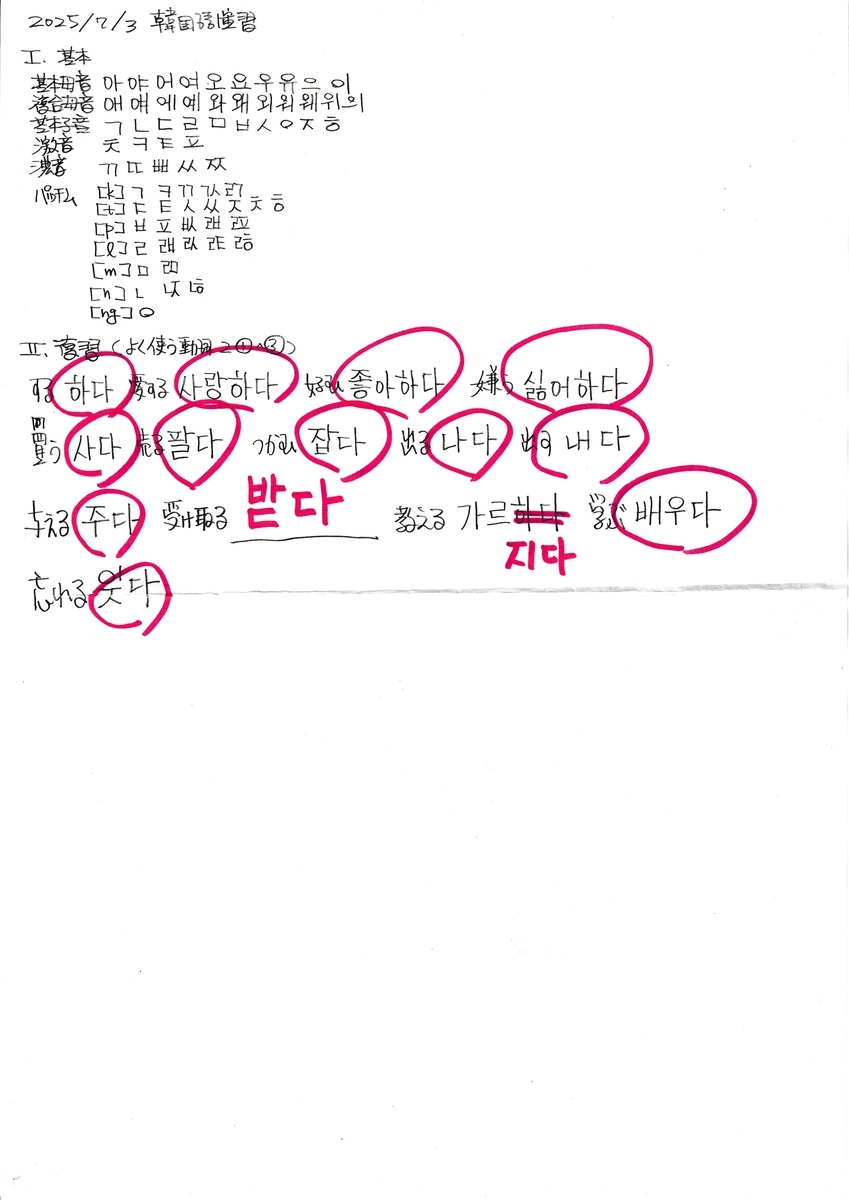 2025/7/3 韓国語演習
I. 基本
基本母音 아 야 어 여 오 요 우 유 으 이
複合母音 애 얘 에 예 와 왜 외 워 웨 위 의
基本子音 ㄱ ㄴ ㄷ ㄹ ㅁ ㅂ ㅅ ㅇ ㅈ ㅎ
激音 ㅊ ㅋ ㅌ ㅍ
濃音 ㄲ ㄸ ㅃ ㅆ ㅉ
パッチム [k] ㄱ ㅋ ㄲ ㄳ ㄺ
[t] ㄷ ㅌ ㅅ ㅆ ㅈ ㅊ ㅎ
[p] ㅂ ㅍ ㅄ ㄼ ㄿ
[l] ㄹ ㄼ ㄽ ㄾ ㅀ
[m] ㅁ ㄻ
[n] ㄴ ㄵ ㄶ
[ng] ㅇ
II. 復習 (よく使う動詞2①~③)
する 하다 愛する 사랑하다 好む 좋아하다 嫌う 싫어하다
買う 사다 売る 팔다 つかむ 잡다 出る 나다 出す 내다
与える 주다 受け取る 받다 教える 가르하다 学ぶ 배우다
지다
忘れる 잊다